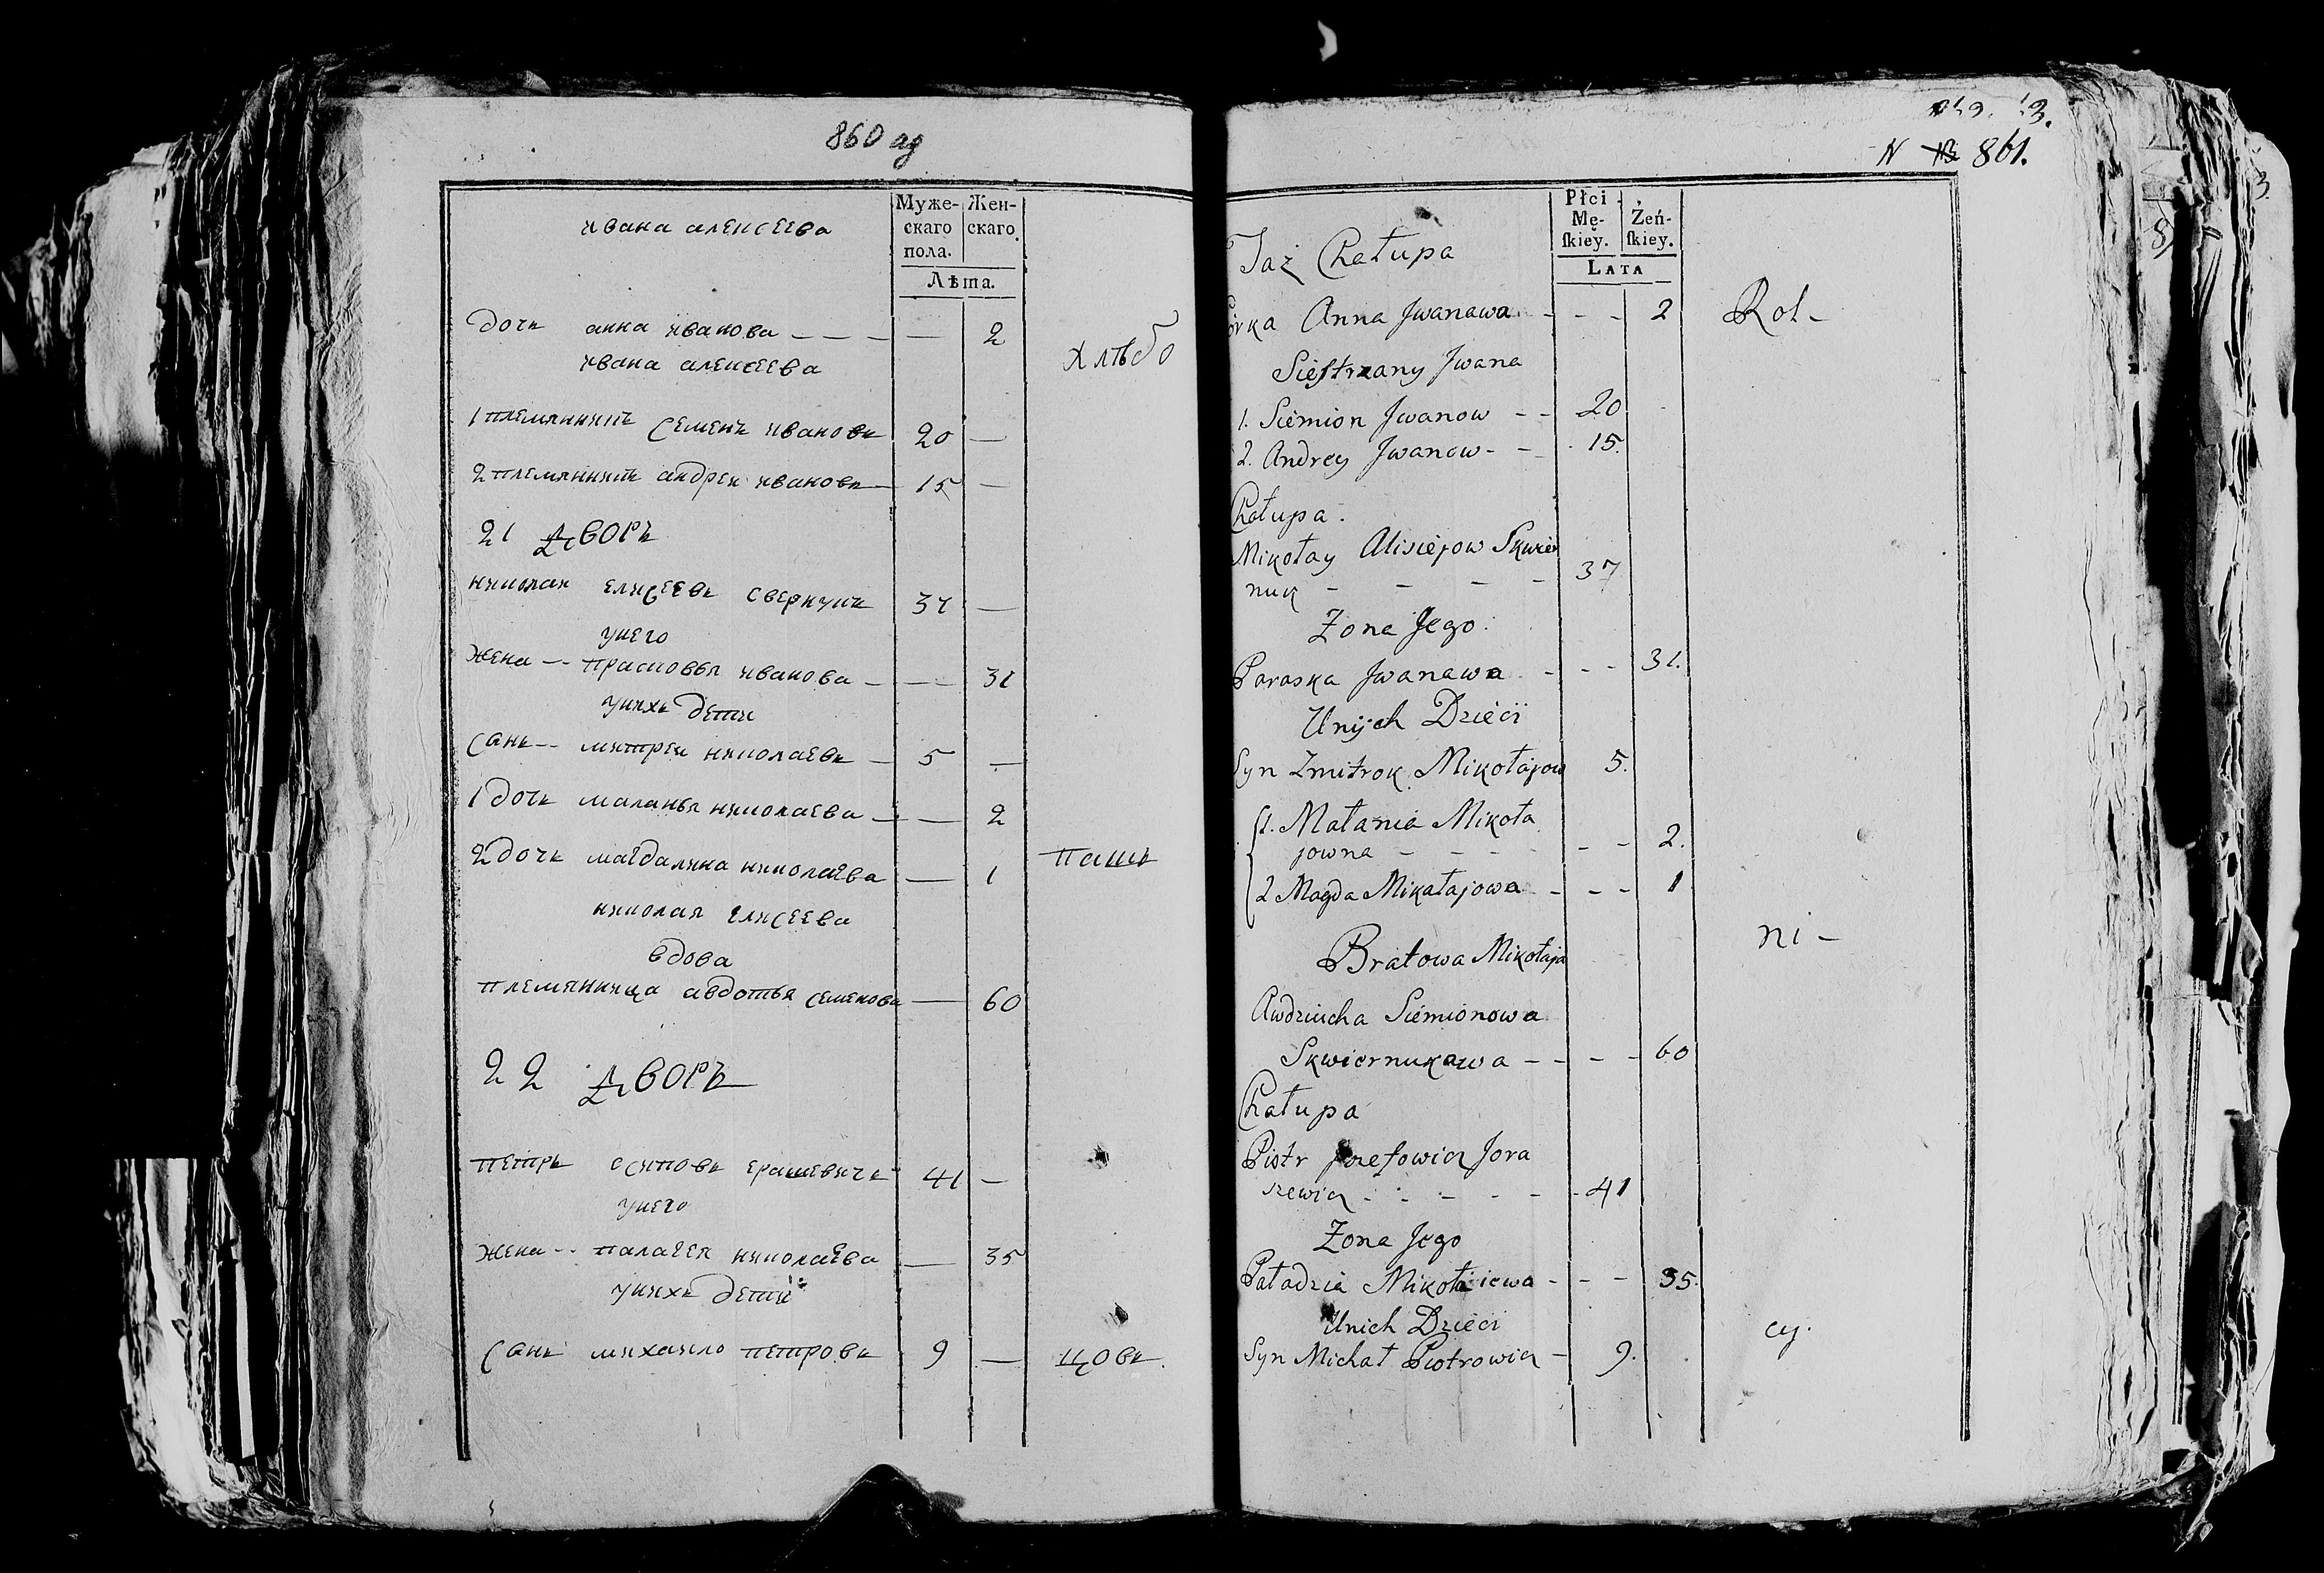 860 ад
Ивана алексеева
Муже- Жен-
скаго скаго.
пола.
Лѣта.
дочь анна иванова — — — — 2
ивана алексеева
Хлѣбо
1 племянникъ семенъ ивановъ 20 —
2 племянникъ андреи ивановъ — 15 —
21 дворъ
николаи елисеевъ свернукъ 37 —
у него
жена -- прасковья иванова — — 31
у нихъ дети
санъ -- митреи николаевъ — 5 —
1 дочь маланья николаева — — 2
2 дочь магдалина николаева — 1
пашъ
николая елисеева
вдова
племянница авдотья семенова — 60
22 дворъ
петръ осиповъ ерашевичъ 41 —
у него
жена -- палагея николаева — 35
у нихъ дети
санъ михаило петровъ 9 —
цовъ.
N 13 861.
Płci
Mę- Żeń-
ſkiey. ſkiey.
LATA
Taż Chałupa
Córka Anna Jwanawa - - - 2
Rol-
Siestrzany Jwana
1. Siemion Jwanow - - 20
2. Andrey Jwanow - - 15.
Chałupa.
Mikołay Alisiejow Skwier
nuk - - - - 37
Zona Jego.
Paraska Jwanawa - - - 31.
Unijch Dzieci
Syn Zmitrok Mikołajow 5.
1. Małania Mikoła
jowna - - - - - - 2.
2 Magda Mikałajowa - - - 1
ni-
Bratowa Mikołaja
Awdziucha Siemionowa
Skwiernukawa - - - - 60
Chałupa
Piotr Jozefowicz Jora
szewicz - - - - - - 41
Zona Jego
Paładzia Mikołaiewa - - - 35.
Unich Dzieci
Syn Michał Piotrowicz - 9.
cy.